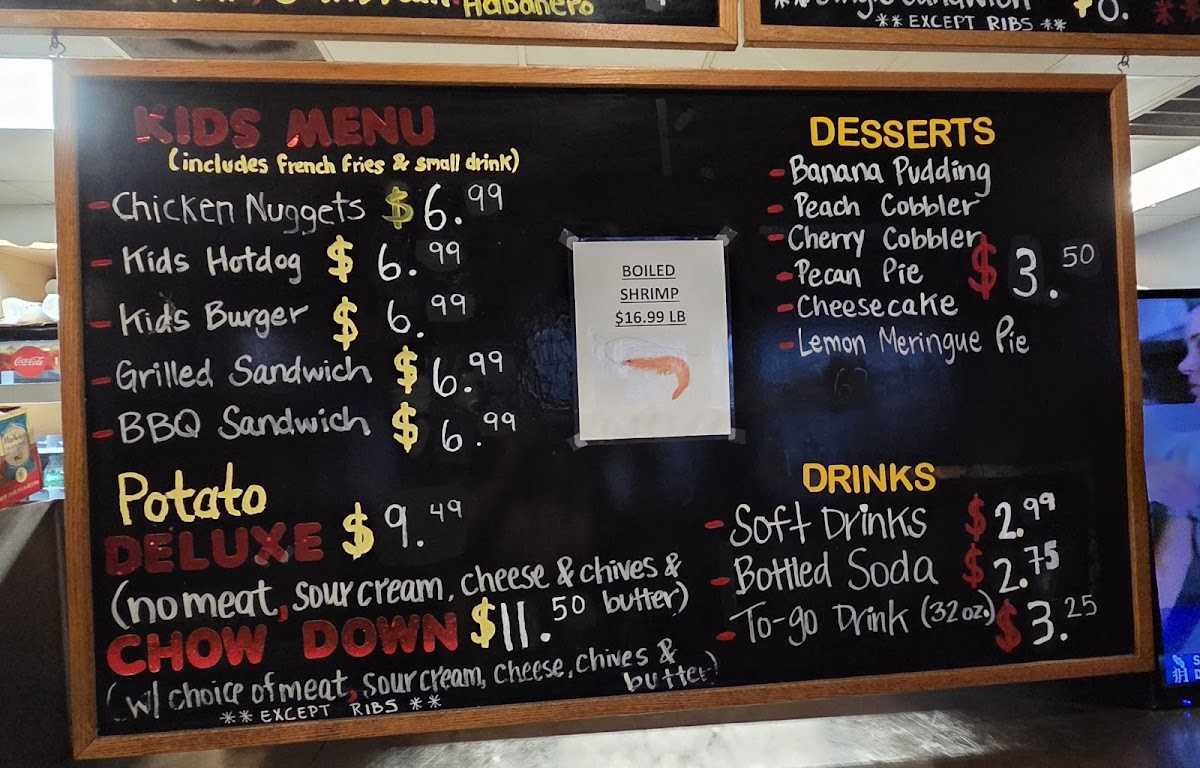 Habanero
** EXCEPT RIBS **
KIDS MENU
(includes french fries & small drink)
- Chicken Nuggets $6.99
- Kids Hotdog $6.99
- Kid's Burger $6.99
- Grilled Sandwich $6.99
- BBQ Sandwich $6.99
Potato
DELUXE $9.49
(no meat, sour cream, cheese & chives &
butter)
CHOW DOWN $11.50
(w/ choice of meat, sour cream, cheese, chives &
butter)
** EXCEPT RIBS **
BOILED
SHRIMP
$16.99 LB
DESSERTS
- Banana Pudding
- Peach Cobbler
- Cherry Cobbler
- Pecan Pie
- Cheesecake
- Lemon Meringue Pie
$3.50
DRINKS
- Soft Drinks $2.99
- Bottled Soda $2.75
- To-go Drink (32oz.) $3.25
Coca-Cola